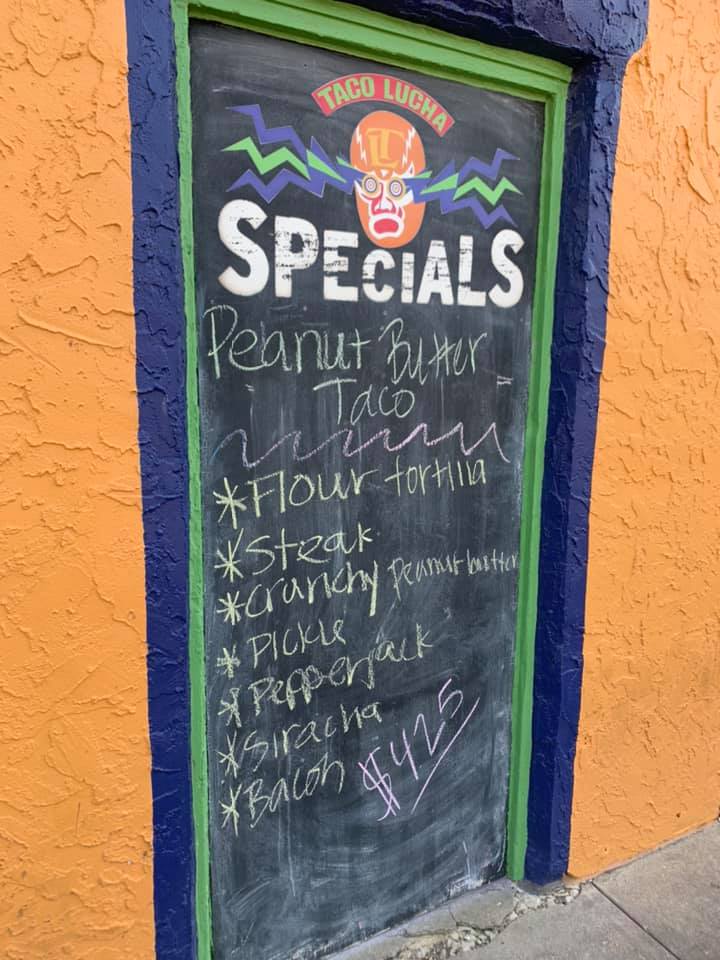 TACO LUCHA
LT
SPECIALS
Peanut Butter
Taco
*Flour tortilla
*Steak
*Crunchy Peanut butter
*Pickle
*Pepperjack
*Siracha
*Bacon $425